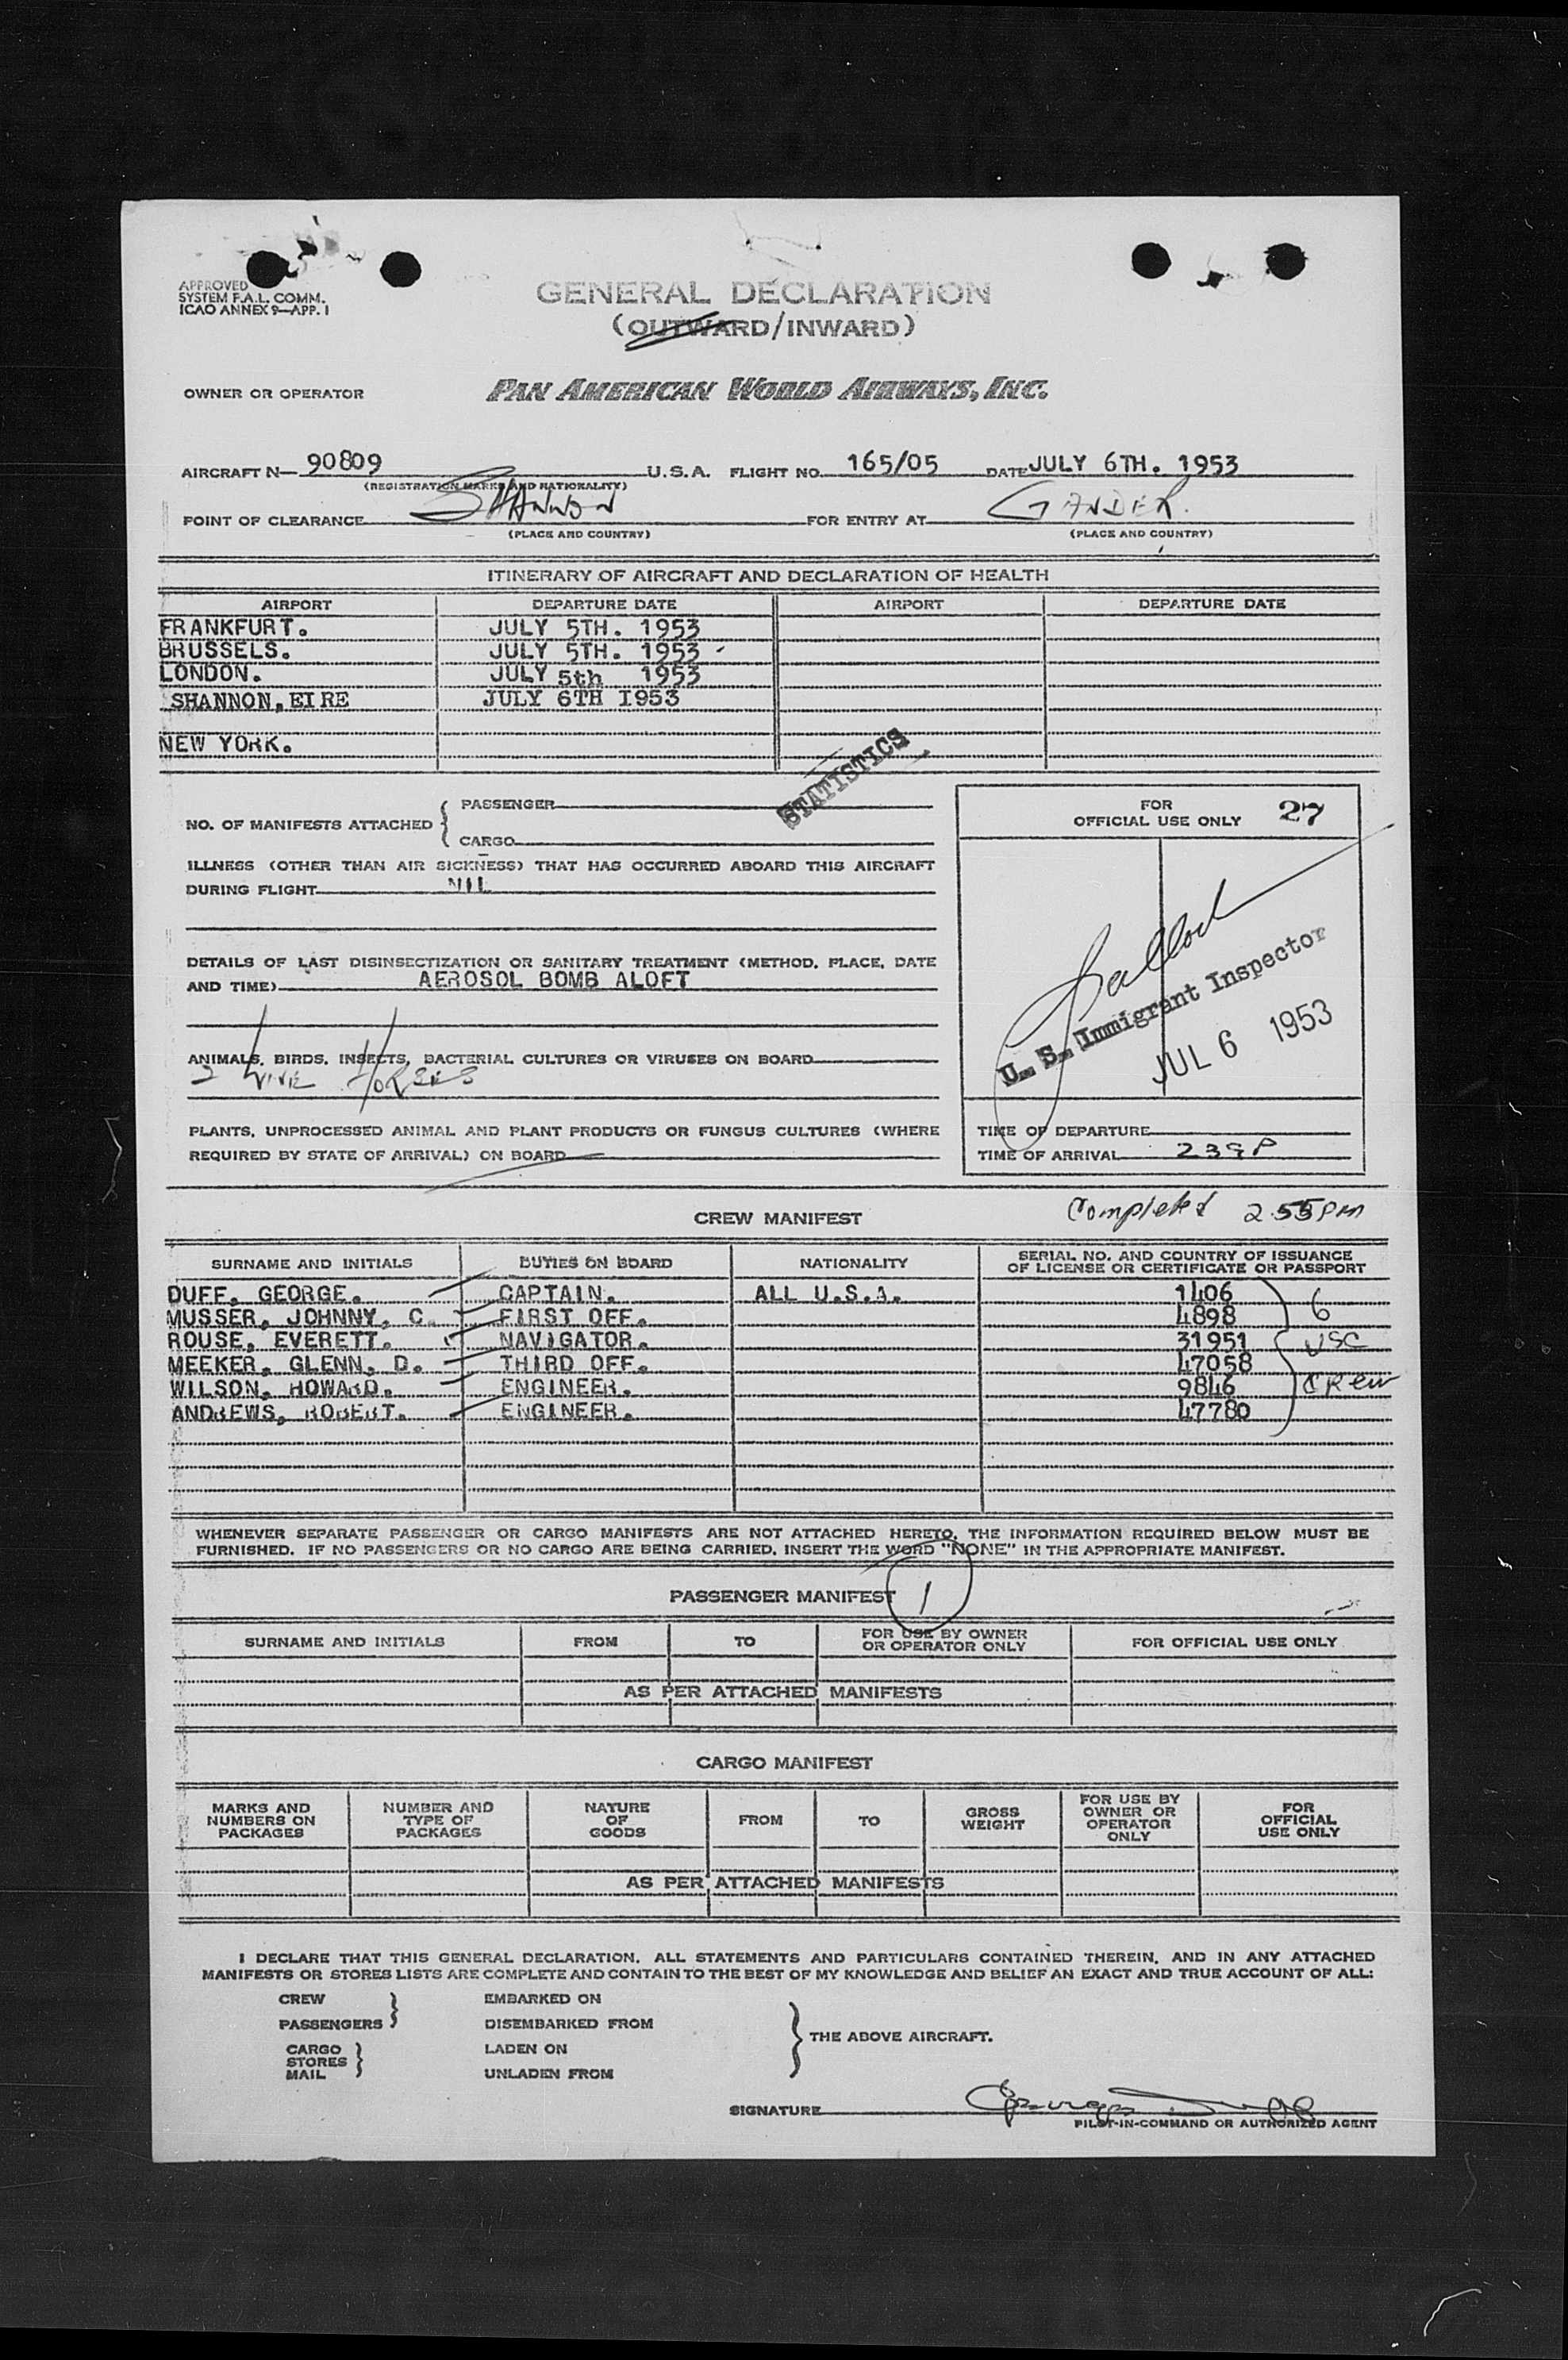 APPROVED
SYSTEM F.A.L. COMM.
ICAO ANNEX 9—APP. 1
GENERAL DECLARATION
(OUTWARD/INWARD)
OWNER OR OPERATOR PAN AMERICAN WORLD AIRWAYS, INC.
AIRCRAFT N— 90809 U.S.A. FLIGHT NO. 165/05 DATE JULY 6TH. 1953
(REGISTRATION MARKS AND NATIONALITY)
POINT OF CLEARANCE SHANNON FOR ENTRY AT GANDER.
(PLACE AND COUNTRY) (PLACE AND COUNTRY)
ITINERARY OF AIRCRAFT AND DECLARATION OF HEALTH
AIRPORT DEPARTURE DATE AIRPORT DEPARTURE DATE
FRANKFURT. JULY 5TH. 1953
BRUSSELS. JULY 5TH. 1953
LONDON. JULY 5th 1953
SHANNON, EIRE JULY 6TH I953
NEW YORK.
STATISTICS
NO. OF MANIFESTS ATTACHED { PASSENGER
CARGO
FOR
OFFICIAL USE ONLY 27
ILLNESS (OTHER THAN AIR SICKNESS) THAT HAS OCCURRED ABOARD THIS AIRCRAFT
DURING FLIGHT NIL
DETAILS OF LAST DISINSECTIZATION OR SANITARY TREATMENT (METHOD, PLACE, DATE
AND TIME) AEROSOL BOMB ALOFT
U. S. Immigrant Inspector
JUL 6 1953
ANIMALS, BIRDS, INSECTS, BACTERIAL CULTURES OR VIRUSES ON BOARD
2 LIVE HORSES
PLANTS, UNPROCESSED ANIMAL AND PLANT PRODUCTS OR FUNGUS CULTURES (WHERE
REQUIRED BY STATE OF ARRIVAL) ON BOARD
TIME OF DEPARTURE
TIME OF ARRIVAL 239P
Completed 2 55 PM
CREW MANIFEST
SURNAME AND INITIALS DUTIES ON BOARD NATIONALITY SERIAL NO. AND COUNTRY OF ISSUANCE
OF LICENSE OR CERTIFICATE OR PASSPORT
DUFF, GEORGE. CAPTAIN. ALL U.S.A. 1406
MUSSER, JOHNNY, C. FIRST OFF. 4898 6
ROUSE, EVERETT. NAVIGATOR. 31951 USC
MEEKER, GLENN, D. THIRD OFF. 47058
WILSON, HOWARD. ENGINEER. 9846 CREW
ANDREWS, ROBERT. ENGINEER. 47780
WHENEVER SEPARATE PASSENGER OR CARGO MANIFESTS ARE NOT ATTACHED HERETO, THE INFORMATION REQUIRED BELOW MUST BE
FURNISHED. IF NO PASSENGERS OR NO CARGO ARE BEING CARRIED, INSERT THE WORD "NONE" IN THE APPROPRIATE MANIFEST.
PASSENGER MANIFEST 1
SURNAME AND INITIALS FROM TO FOR USE BY OWNER
OR OPERATOR ONLY FOR OFFICIAL USE ONLY
AS PER ATTACHED MANIFESTS
CARGO MANIFEST
MARKS AND
NUMBERS ON
PACKAGES
NUMBER AND
TYPE OF
PACKAGES
NATURE
OF
GOODS
FROM
TO
GROSS
WEIGHT
FOR USE BY
OWNER OR
OPERATOR
ONLY
FOR
OFFICIAL
USE ONLY
AS PER ATTACHED MANIFESTS
I DECLARE THAT THIS GENERAL DECLARATION, ALL STATEMENTS AND PARTICULARS CONTAINED THEREIN, AND IN ANY ATTACHED
MANIFESTS OR STORES LISTS ARE COMPLETE AND CONTAIN TO THE BEST OF MY KNOWLEDGE AND BELIEF AN EXACT AND TRUE ACCOUNT OF ALL:
CREW EMBARKED ON
PASSENGERS } DISEMBARKED FROM
THE ABOVE AIRCRAFT.
CARGO LADEN ON
STORES }
MAIL UNLADEN FROM
SIGNATURE George Duff
PILOT-IN-COMMAND OR AUTHORIZED AGENT